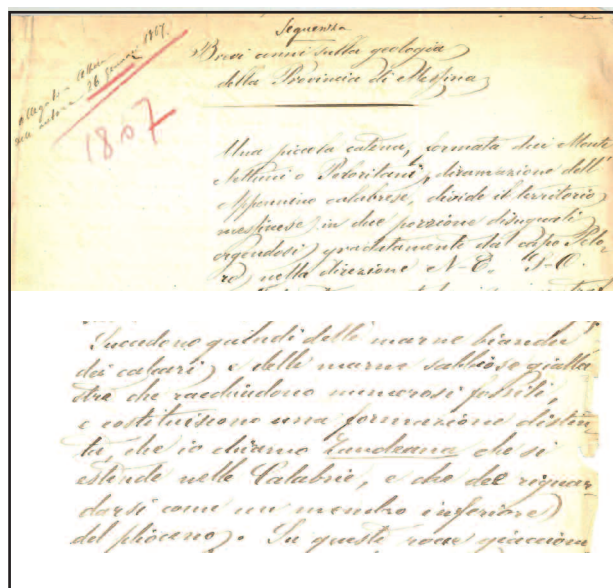 Seguenza
Brevi cenni sulla geologia
della Provincia di Messina
allegato a lettera
dell'autore 26 gennaio 1807
1807
Una piccola catena, formata dai Monti
Nettuni o Peloritani, diramazione dell'
Appennino calabrese, divide il territorio
messinese in due porzione disuguali
ergendosi gradatamente dal capo Pelo-
ro, nella direzione N-E. S-O.
Succedono quindi delle marne bianche
dei calcari, e delle marne sabbiose gialla
stre che racchiudono numerosi fossili,
e costituiscono una formazione distin
ta, che io chiamo Zancleana che si
estende nelle Calabrie, e che dee riguar
darsi come un membro inferiore
del plioceno. In queste rocce giacciono